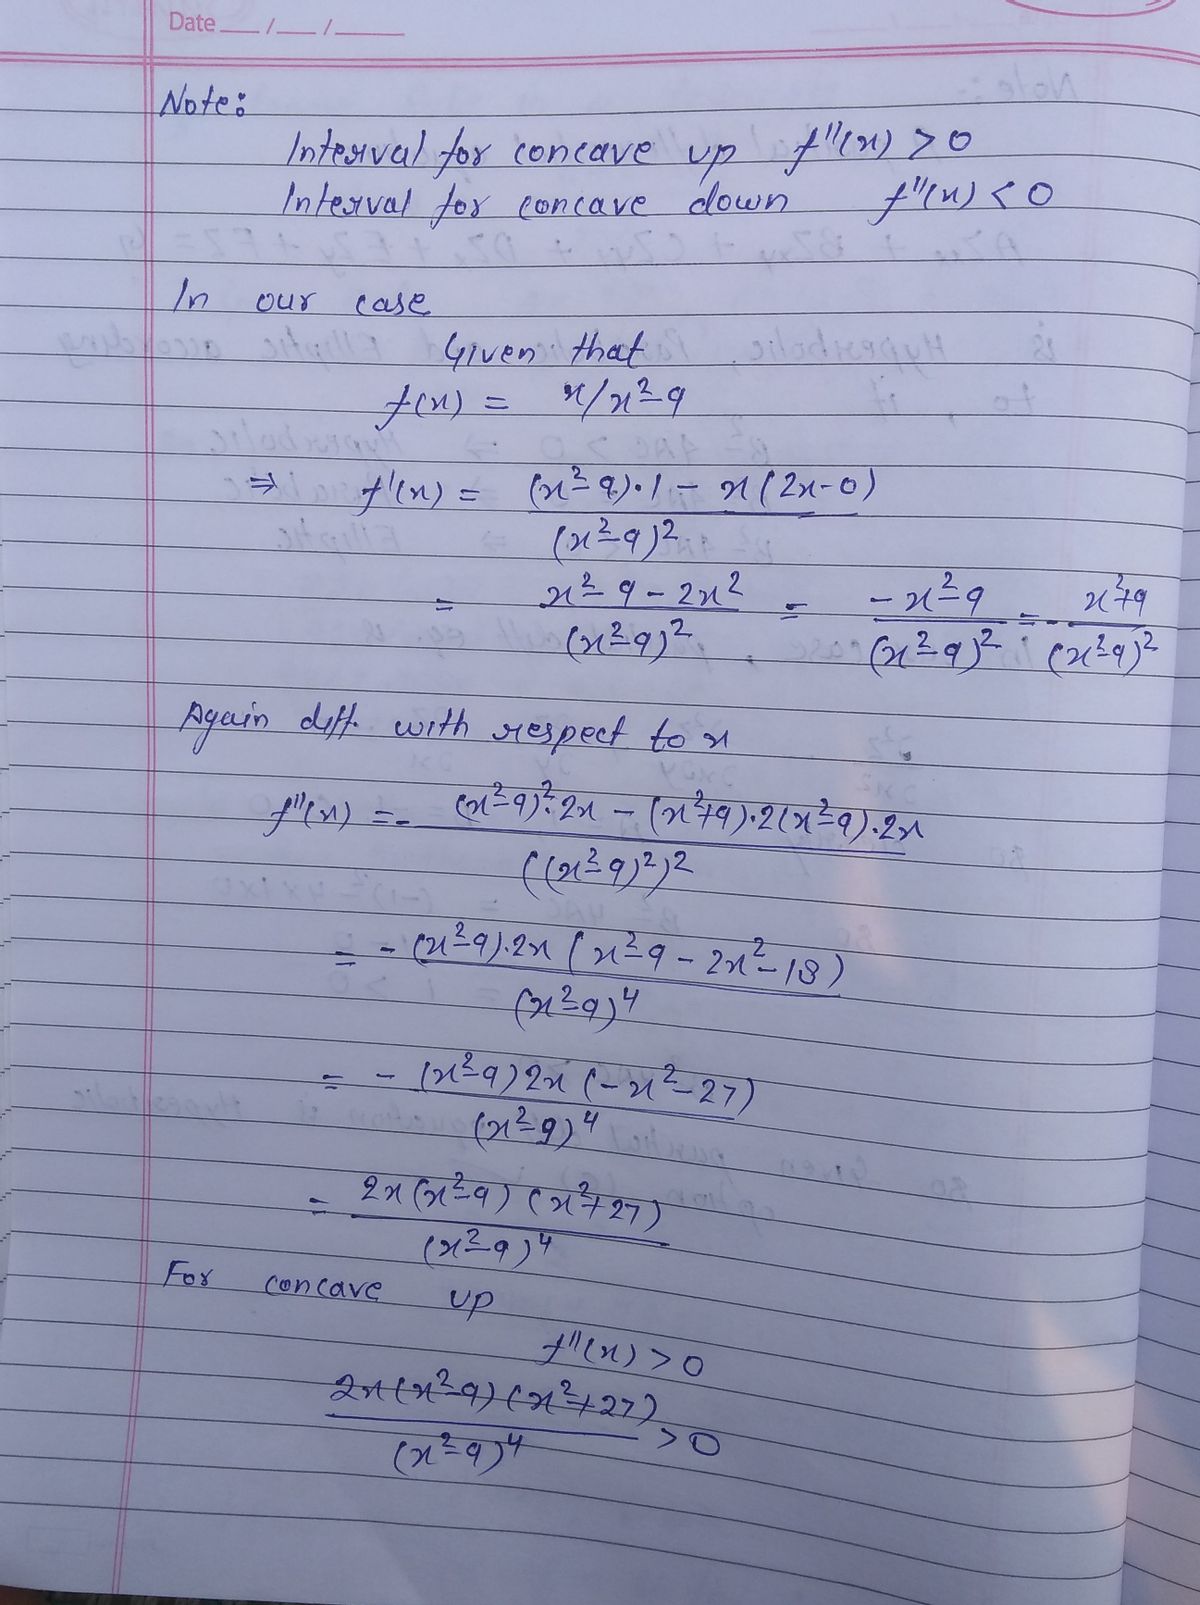 Date __/__/____
Note:
Interval for concave up f''(x) > 0
Interval for concave down f''(x) < 0
In our case
Given that
f(x) = x/x²-9
⇒ f'(x) = (x²-9)·1 - x(2x-0) / (x²-9)²
= x²-9-2x² / (x²-9)² = -x²-9 / (x²-9)² = - x²+9 / (x²-9)²
Again diff. with respect to x
f''(x) = - (x²-9)²·2x - (x²+9)·2(x²-9)·2x / ((x²-9)²)²
= - (x²-9)·2x (x²-9-2x²-18) / (x²-9)⁴
= - (x²-9)2x (-x²-27) / (x²-9)⁴
= 2x(x²-9) (x²+27) / (x²-9)⁴
For concave up
f''(x) > 0
2x(x²-9) (x²+27) / (x²-9)⁴ > 0